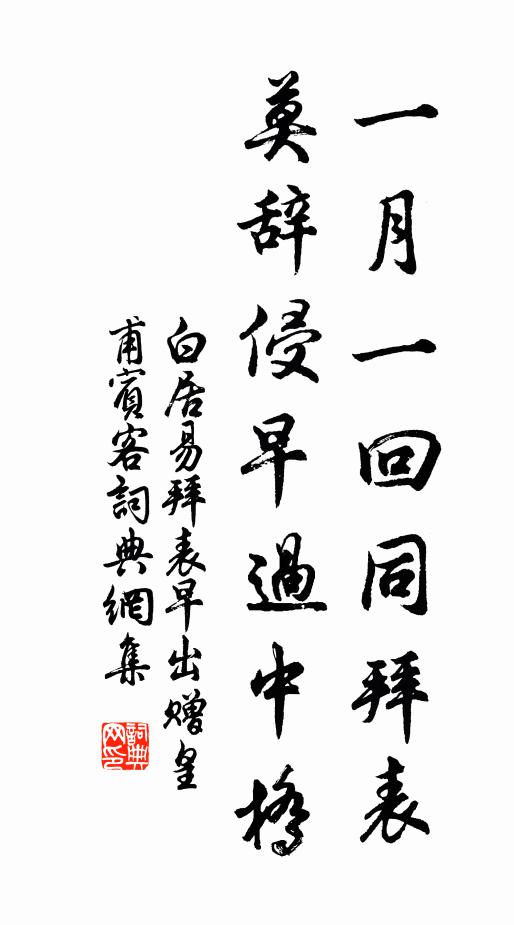 一月一回同拜表
莫辞侵早過中橋
白居易拜表早出赠皇
甫賓客詞典網集
詞典
网印